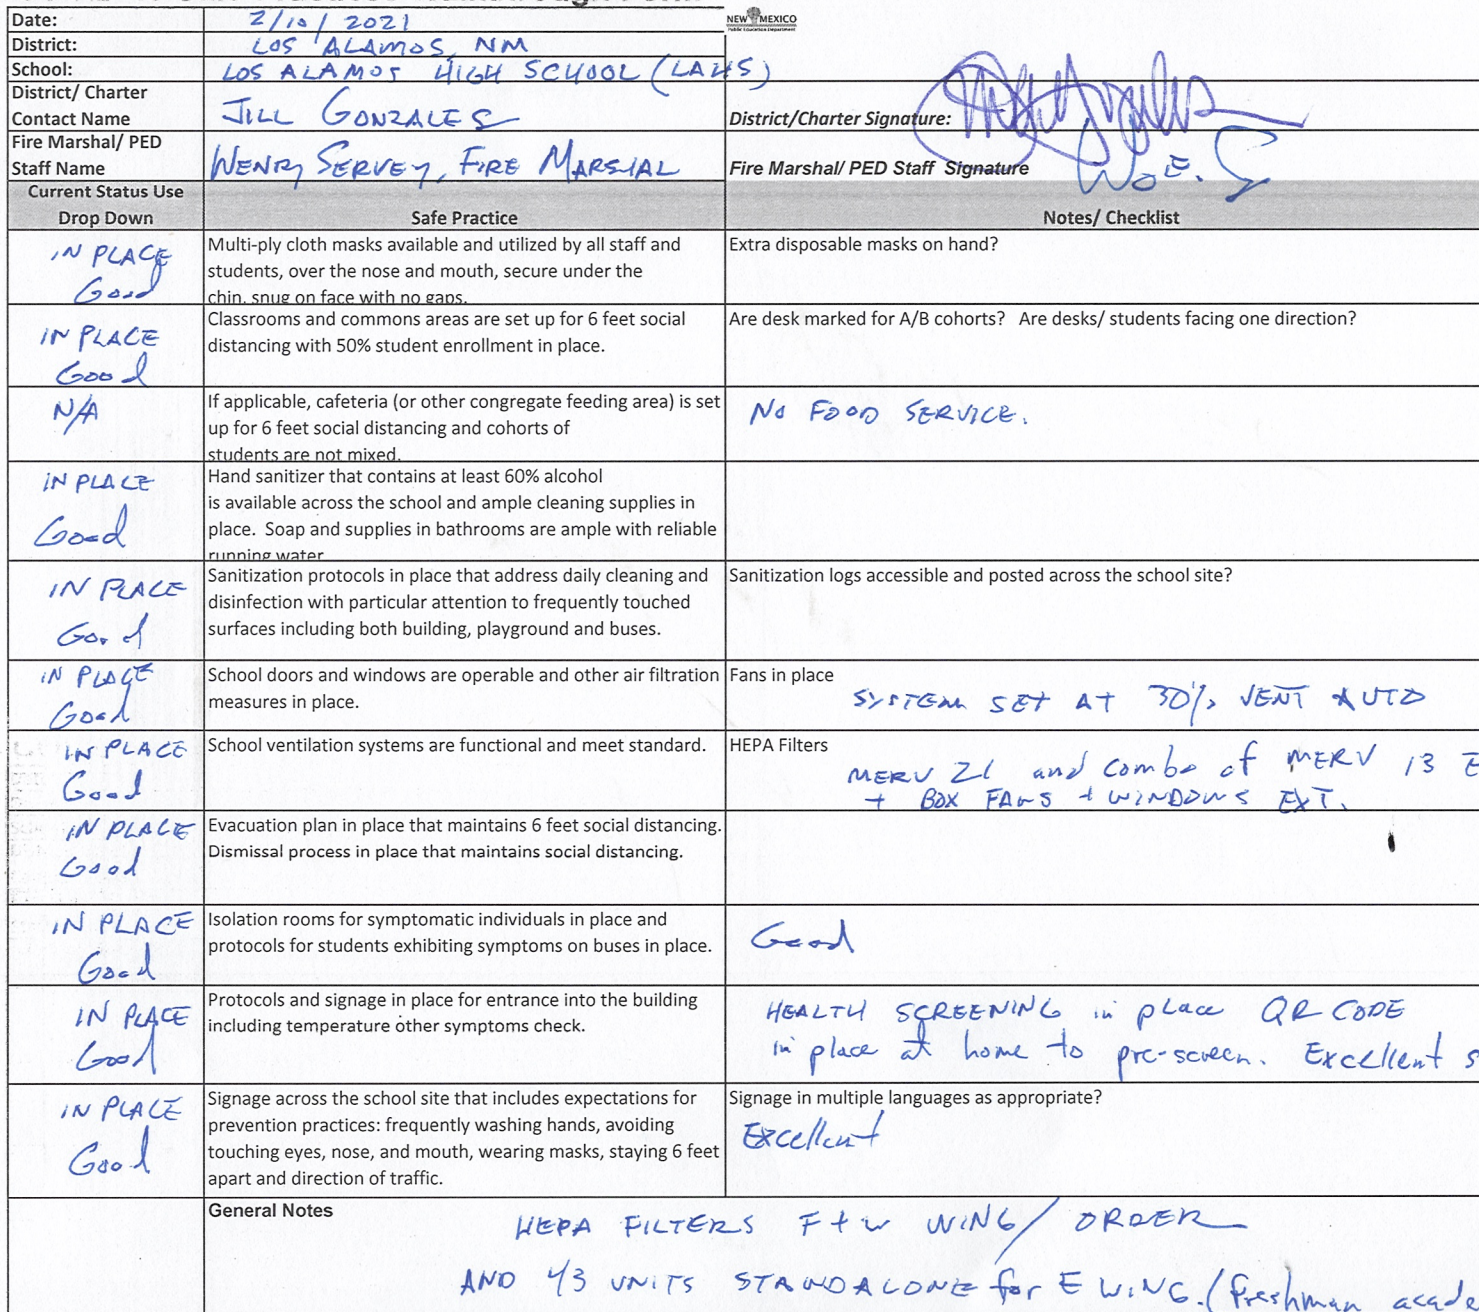 Date: 2/10/2021
NEW MEXICO
Public Education Department
District: LOS ALAMOS, NM
School: LOS ALAMOS HIGH SCHOOL (LAHS)
District/ Charter
Contact Name JILL GONZALES District/Charter Signature:
Fire Marshal/ PED
Staff Name WENRY SERVEY, FIRE MARSHAL Fire Marshal/ PED Staff Signature
Current Status Use
Drop Down Safe Practice Notes/ Checklist
IN PLACE
Good
Multi-ply cloth masks available and utilized by all staff and
students, over the nose and mouth, secure under the
chin, snug on face with no gaps.
Extra disposable masks on hand?
IN PLACE
Good
Classrooms and commons areas are set up for 6 feet social
distancing with 50% student enrollment in place.
Are desk marked for A/B cohorts? Are desks/ students facing one direction?
N/A
If applicable, cafeteria (or other congregate feeding area) is set
up for 6 feet social distancing and cohorts of
students are not mixed.
NO FOOD SERVICE.
IN PLACE
Good
Hand sanitizer that contains at least 60% alcohol
is available across the school and ample cleaning supplies in
place. Soap and supplies in bathrooms are ample with reliable
running water
IN PLACE
Good
Sanitization protocols in place that address daily cleaning and
disinfection with particular attention to frequently touched
surfaces including both building, playground and buses.
Sanitization logs accessible and posted across the school site?
IN PLACE
Good
School doors and windows are operable and other air filtration
measures in place.
Fans in place
SYSTEM SET AT 30% VENT AUTO
IN PLACE
Good
School ventilation systems are functional and meet standard.
HEPA Filters
MERV 21 and combo of MERV 13 E
+ BOX FANS + WINDOWS EXT.
IN PLACE
Good
Evacuation plan in place that maintains 6 feet social distancing.
Dismissal process in place that maintains social distancing.
IN PLACE
Good
Isolation rooms for symptomatic individuals in place and
protocols for students exhibiting symptoms on buses in place.
Good
IN PLACE
Good
Protocols and signage in place for entrance into the building
including temperature other symptoms check.
HEALTH SCREENING in place QR CODE
in place at home to pre-screen. Excellent s
IN PLACE
Good
Signage across the school site that includes expectations for
prevention practices: frequently washing hands, avoiding
touching eyes, nose, and mouth, wearing masks, staying 6 feet
apart and direction of traffic.
Signage in multiple languages as appropriate?
Excellent
General Notes
HEPA FILTERS F+W WING/ ORDER
AND 43 UNITS STANDALONE for E WING. (freshman acade